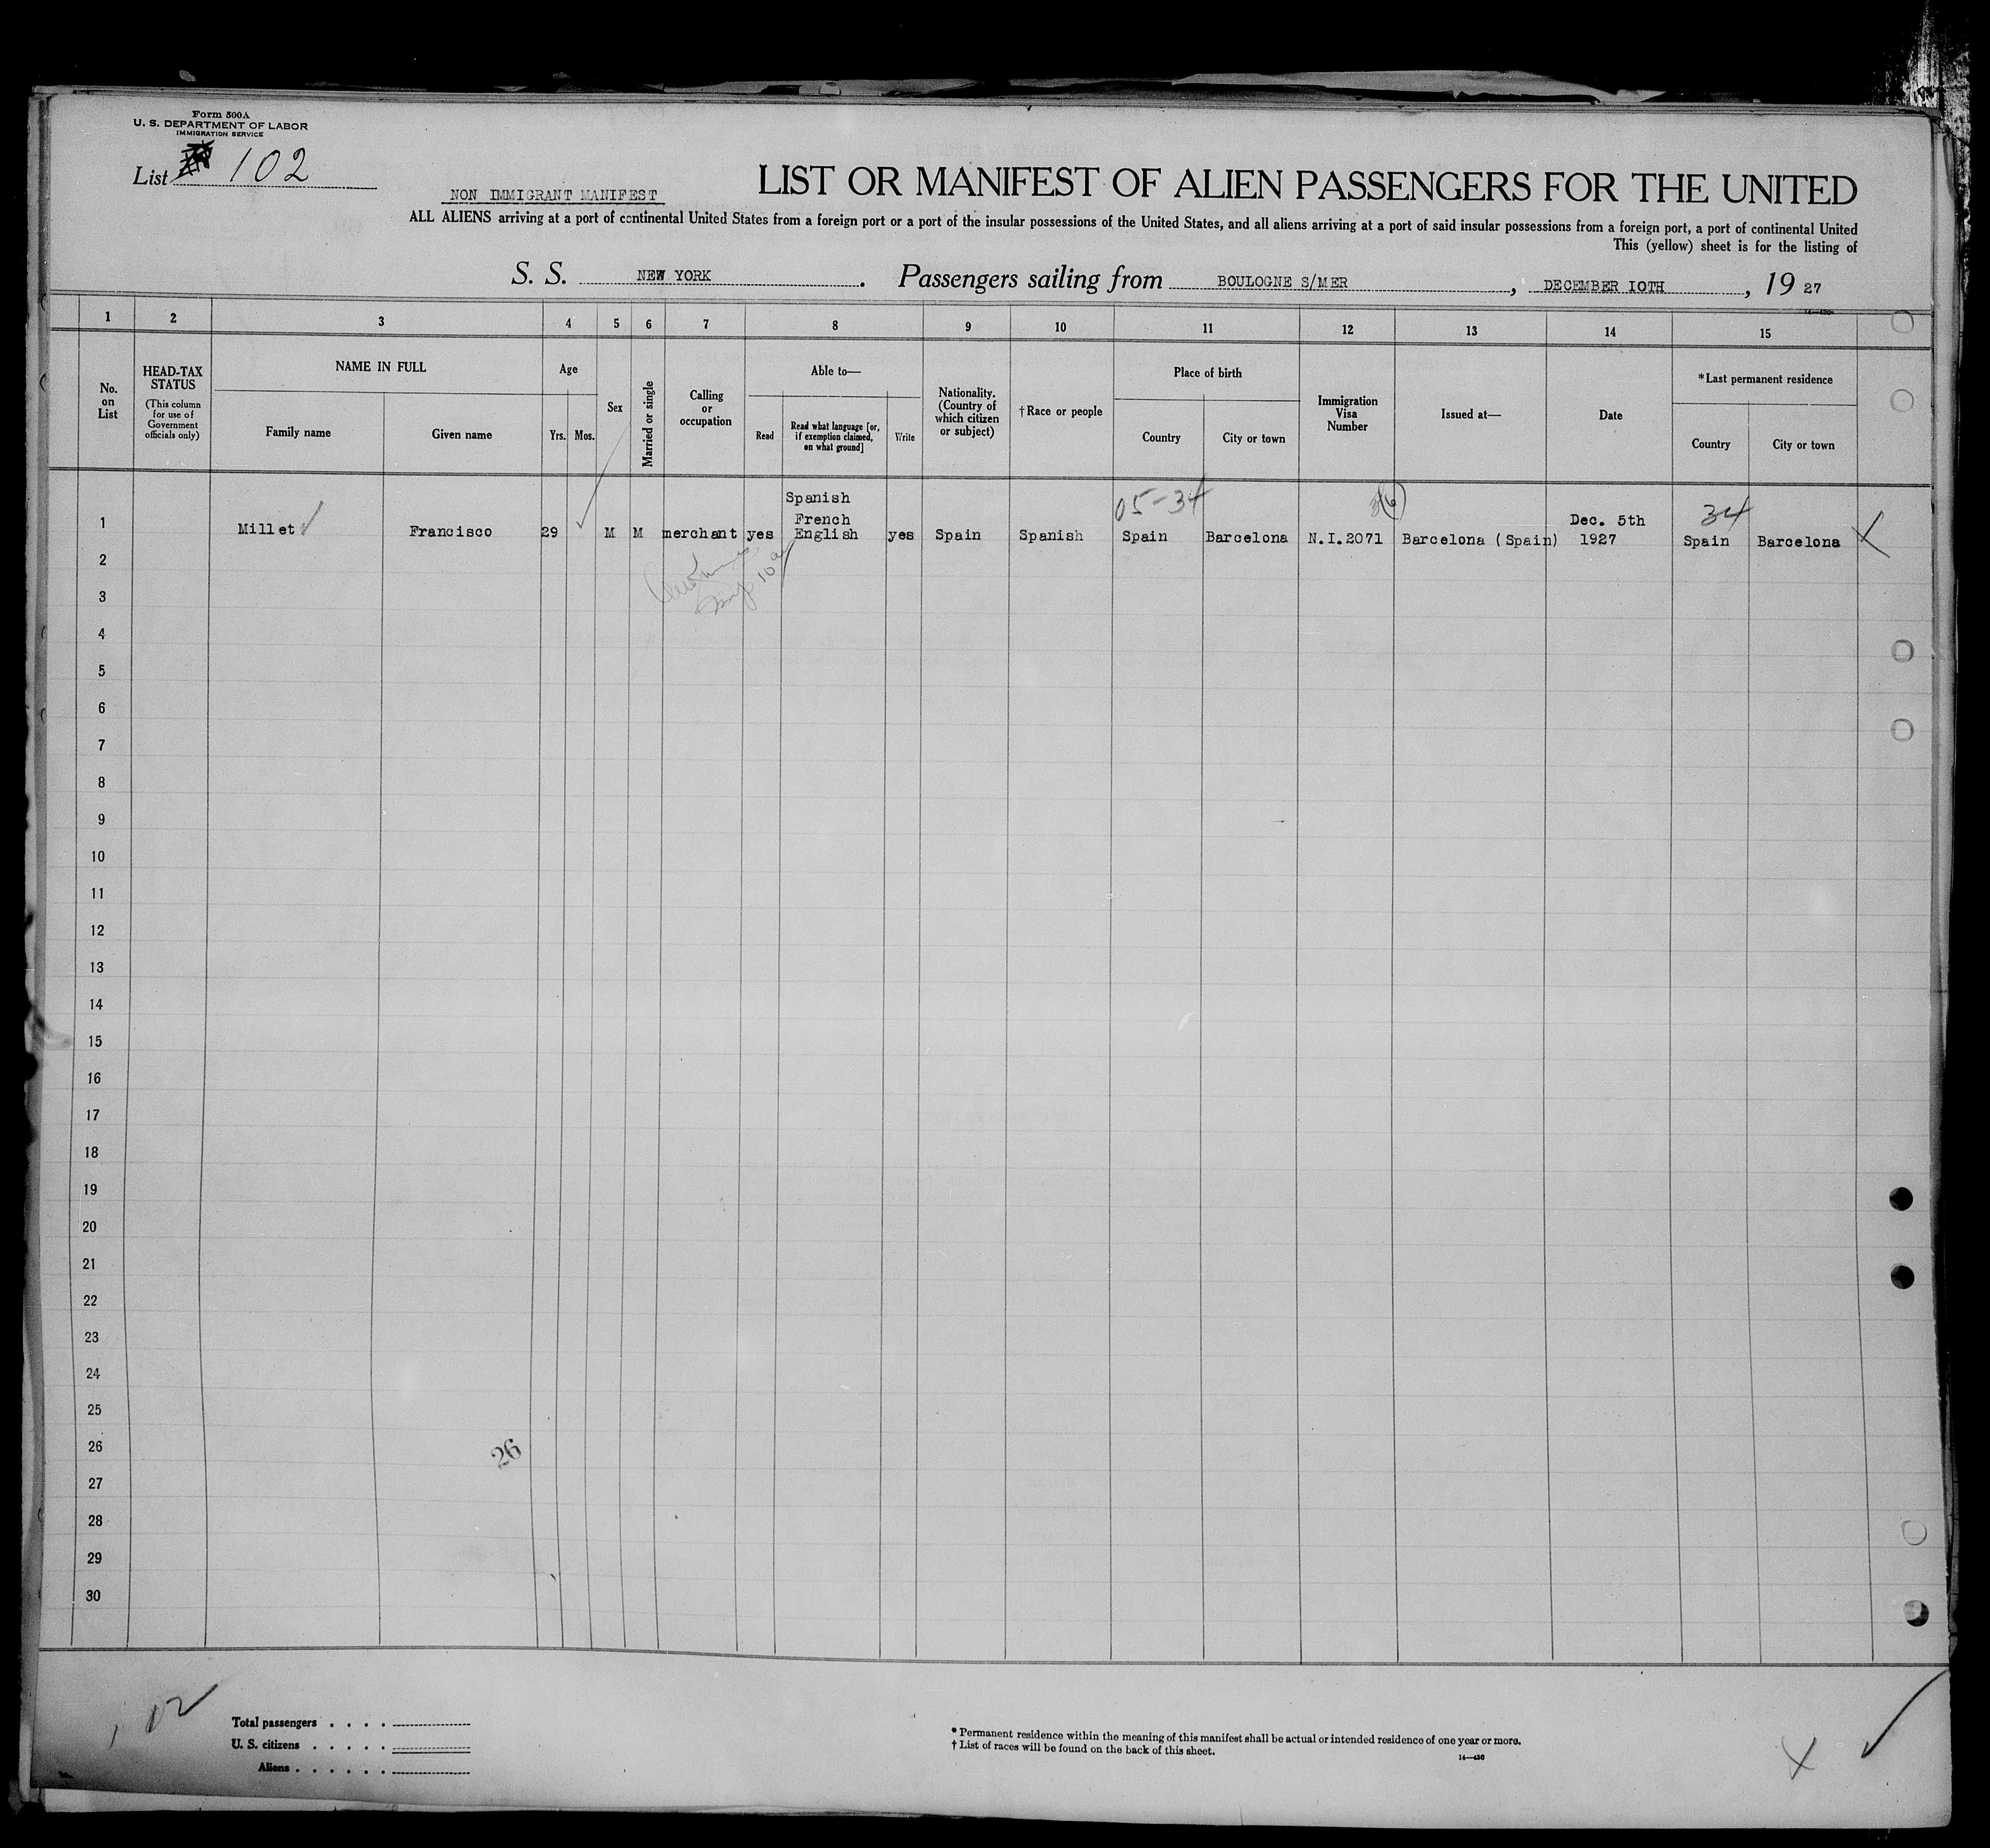 Form 500A
U. S. DEPARTMENT OF LABOR
IMMIGRATION SERVICE
List 102
NON IMMIGRANT MANIFEST
LIST OR MANIFEST OF ALIEN PASSENGERS FOR THE UNITED
ALL ALIENS arriving at a port of continental United States from a foreign port or a port of the insular possessions of the United States, and all aliens arriving at a port of said insular possessions from a foreign port, a port of continental United
This (yellow) sheet is for the listing of
S. S. NEW YORK. Passengers sailing from BOULOGNE S/MER, DECEMBER 10TH, 19 27
14—430
1 2 3 4 5 6 7 8 9 10 11 12 13 14 15
No. on List
HEAD-TAX STATUS
(This column for use of Government officials only)
NAME IN FULL
Family name
Given name
Age
Yrs. Mos.
Sex
Married or single
Calling or occupation
Able to—
Read
Read what language [or, if exemption claimed, on what ground]
Write
Nationality. (Country of which citizen or subject)
†Race or people
Place of birth
Country
City or town
Immigration Visa Number
Issued at—
Date
*Last permanent residence
Country
City or town
05-34
34
1 Millet Francisco 29 M M merchant yes Spanish French English yes Spain Spanish Spain Barcelona N.I.2071 Barcelona (Spain) Dec. 5th 1927 Spain Barcelona X
2
3
4
5
6
7
8
9
10
11
12
13
14
15
16
17
18
19
20
21
22
23
24
25
26
26
27
28
29
30
102
Total passengers . . . .
U. S. citizens . . . . .
Aliens . . . . . .
* Permanent residence within the meaning of this manifest shall be actual or intended residence of one year or more.
† List of races will be found on the back of this sheet.
14—430
X